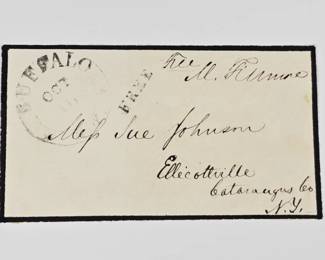 BUFFALO
OCT
FREE
Free
M. Fillmore
Miss Sue Johnson
Ellicottville
Cataraugus Co
N.Y.